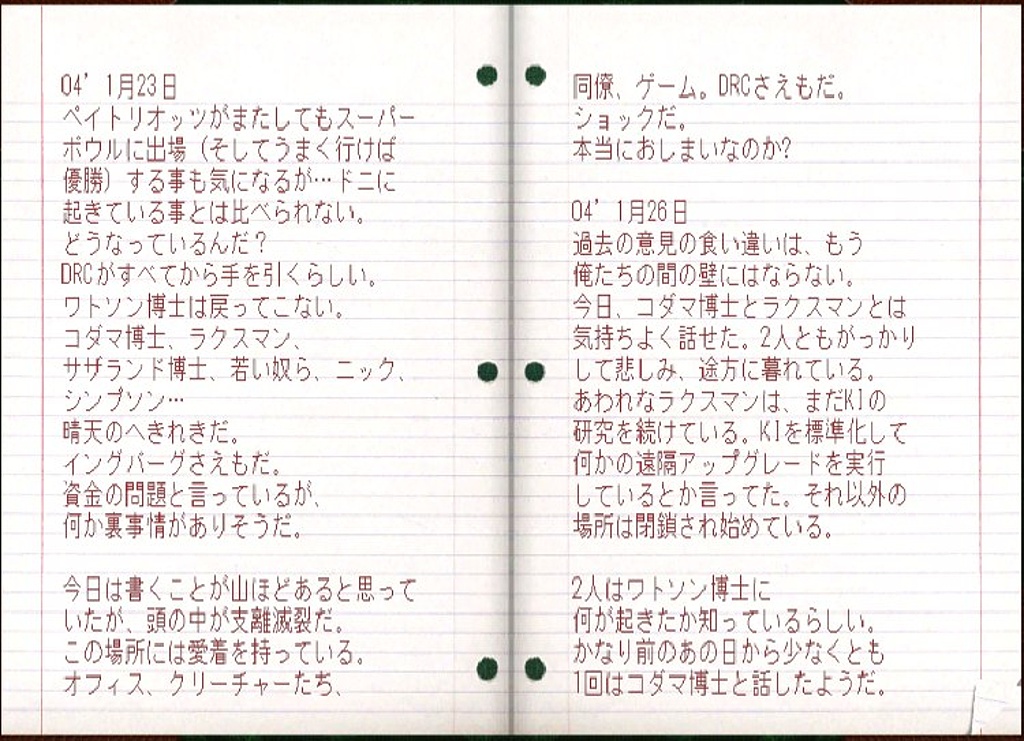 04' 1月23日
ペイトリオッツがまたしてもスーパー
ボウルに出場（そしてうまく行けば
優勝）する事も気になるが…ドニに
起きている事とは比べられない。
どうなっているんだ？
DRCがすべてから手を引くらしい。
ワトソン博士は戻ってこない。
コダマ博士、ラクスマン、
サザランド博士、若い奴ら、ニック、
シンプソン…
晴天のへきれきだ。
イングバーグさえもだ。
資金の問題と言っているが、
何か裏事情がありそうだ。
今日は書くことが山ほどあると思って
いたが、頭の中が支離滅裂だ。
この場所には愛着を持っている。
オフィス、クリーチャーたち、
同僚、ゲーム。DRCさえもだ。
ショックだ。
本当におしまいなのか?
04' 1月26日
過去の意見の食い違いは、もう
俺たちの間の壁にはならない。
今日、コダマ博士とラクスマンとは
気持ちよく話せた。2人ともがっかり
して悲しみ、途方に暮れている。
あわれなラクスマンは、まだKIの
研究を続けている。KIを標準化して
何かの遠隔アップグレードを実行
しているとか言ってた。それ以外の
場所は閉鎖され始めている。
2人はワトソン博士に
何が起きたか知っているらしい。
かなり前のあの日から少なくとも
1回はコダマ博士と話したようだ。